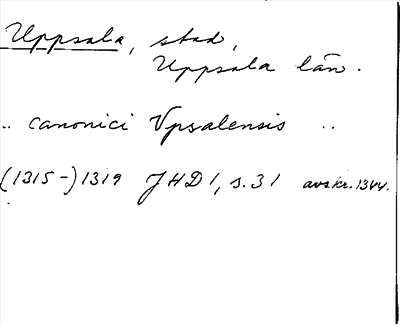 Uppsala, stad,
Uppsala län.
.. canonici Vpsalensis ..
(1315-)1319 JHD 1, s. 31 avskr. 1344.